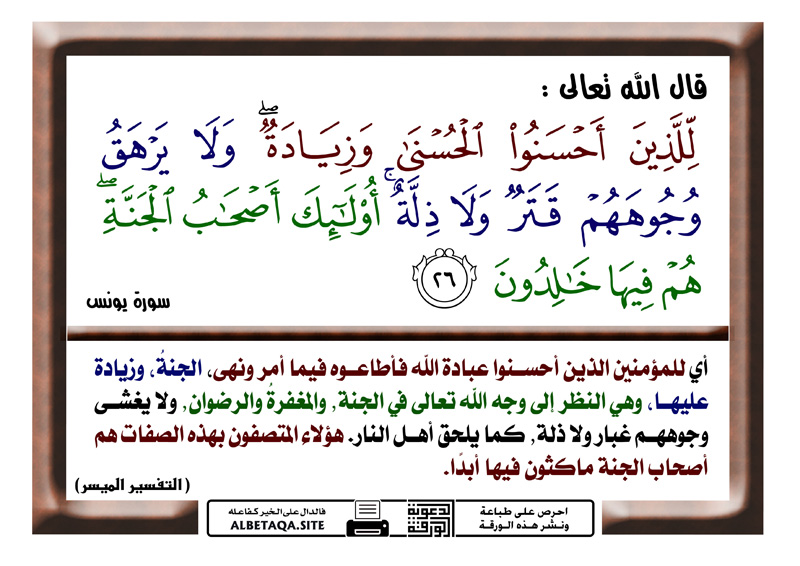 قال الله تعالى :
لِّلَّذِينَ أَحۡسَنُواْ ٱلۡحُسۡنَىٰ وَزِيَادَةٞۖ وَلَا يَرۡهَقُ
وُجُوهَهُمۡ قَتَرٞ وَلَا ذِلَّةٌۚ أُوْلَٰٓئِكَ أَصۡحَٰبُ ٱلۡجَنَّةِۖ
هُمۡ فِيهَا خَٰلِدُونَ ٢٦
سورة يونس
أي للمؤمنين الذين أحسنوا عبادة الله فأطاعوه فيما أمر ونهى، الجنةُ، وزيادة
عليها، وهي النظر إلى وجه الله تعالى في الجنة, والمغفرةُ والرضوان, ولا يغشى
وجوههم غبار ولا ذلة, كما يلحق أهل النار. هؤلاء المتصفون بهذه الصفات هم
أصحاب الجنة ماكثون فيها أبدًا.
(التفسير الميسر)
احرص على طباعة
ونشر هذه الورقة
الورقة
لدعوية
فالدال على الخير كفاعله
ALBETAQA.SITE